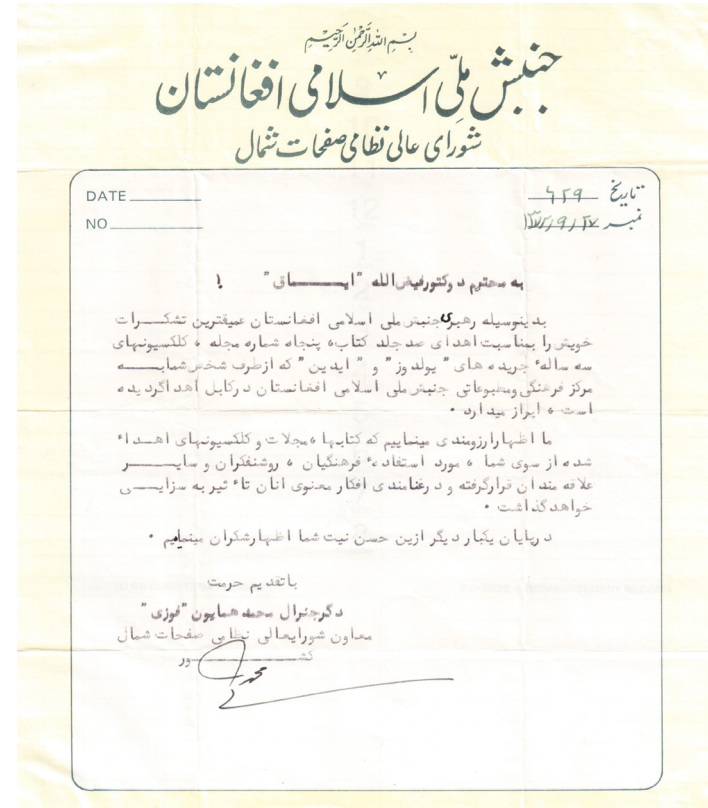 بسم الله الرحمن الرحیم
جنبش ملّی اسلامی افغانستان
شورای عالی نظامی صفحات شمال
DATE
تاریخ ۶۲۹
NO
نمبر ۱۳۷۲/۹/۲۷
به محترم دوکتور فیض الله "ایماق" !
بدینوسیله رهبری جنبش ملی اسلامی افغانستان عمیقترین تشکرات
خویش را بمناسبت اهدای صد جلد کتاب، پنجاه شماره مجله، کلکسیونهای
سه سالهٔ جریده های "یولدوز" و "ایدین" که از طرف شخص شما به
مرکز فرهنگی ومطبوعاتی جنبش ملی اسلامی افغانستان در کابل اهدا گردیده
است، ابراز میدارد.
ما اظهار ارزومندی مینماییم که کتابها، مجلات و کلکسیونهای اهداء
شده از سوی شما، مورد استفادهٔ فرهنگیان، روشنفکران و سایر
علاقه مندان قرار گرفته و در غنامندی افکار معنوی انان تاء ثیر به سزایی
خواهد گذاشت.
درپایان یکبار دیگر ازین حسن نیت شما اظهار شکران مینماییم.
با تقدیم حرمت
دگر جنرال محمد همایون "فوزی"
معاون شورایعالی نظامی صفحات شمال
کشور